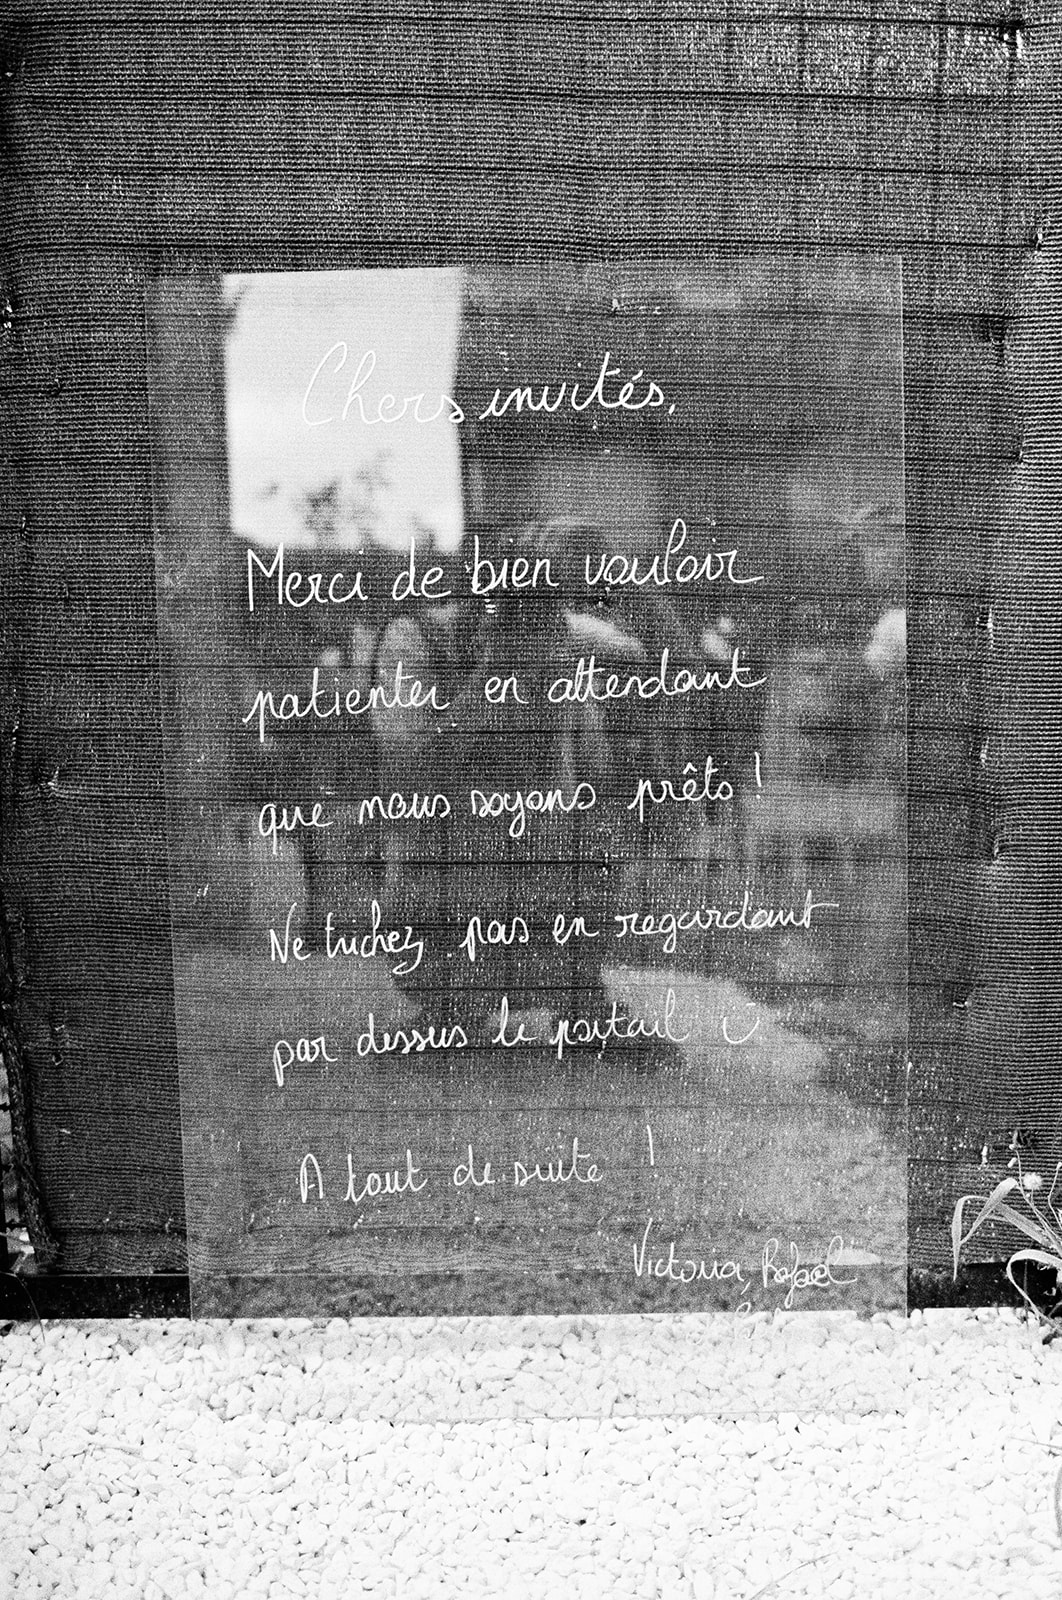 Chers invités,
Merci de bien vouloir
patienter en attendant
que nous soyons prêts !
Ne trichez pas en regardant
par dessus le portail
A tout de suite !
Victoria, Rafael